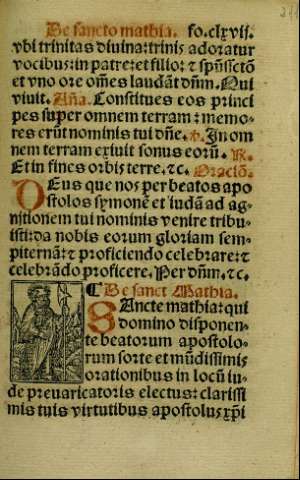 De sancto mathia. fo. clxvij.
vbi trinitas diuina: trinis adoratur
vocibus: in patre: et filio: ⁊ spūsctō
et vno ore om̄es laudāt dñm. Qui
viuit. Aña. Constitues eos princi
pes super omnem terram: memo
res erūt nominis tui dñe. ℣. In om
nem terram exiuit sonus eorū. R.
Et in fines orbis terre. ⁊c. Oraciō.
DEus que nos per beatos apo
stolos symonē et iudā ad ag
nitionem tui nominis venire tribu
isti: da nobis eorum gloriam sem
piternā: ⁊ proficiendo celebrare: ⁊
celebrādo proficere. Per dñm. ⁊c.
¶ De sanct Mathia.
SAncte mathia: qui
domino disponen
te beatorum apostolo
rum sorte et mūdissimis
orationibus in locū iu
de preuaricatoris electus: clarissi
mis tuis virtutibus apostolus xp̄i